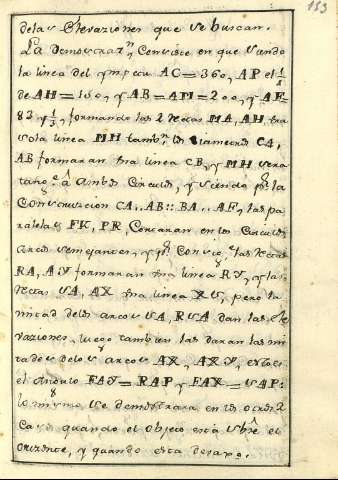 153
delas Elevaziones que se buscan.
La Demostraz.n Consiste en que siendo
la linea del ympetu AC=360, AP el 1/4
de AH=150, y AB=AM=200, y AF=
83 y 1/3, formando las 2 rectas MA, AH una
sola linea MH tamb.n los Diametros CA,
AB formaran una linea CB, y MH sera
tang.e â Ambos Circulos, y siendo p.r la
Construccion CA..AB::BA..AF, las pa
ralelas FK, PR, Cortaran en los Circulos
Arcos semejantes, y p.r Consig.te las rectas
RA, AY formaran una linea RY, y las
rectas SA, AX una linea XS, pero la
mitad delos arcos SA, RSA dan las ele
vaziones, luego tambien las daran las mi
tades delos arcos AX, AXY, esto es
el Angulo FAY=RAP, y FAX=SAP:
lo mismo se demostrara en los otros 2
Casos quando el objeto està sobre el
orizonte, y quando esta debaxo.